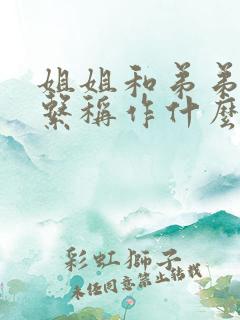 姐姐和弟弟
繫稱作什麼
彩虹獅子
未任同意禁止转载